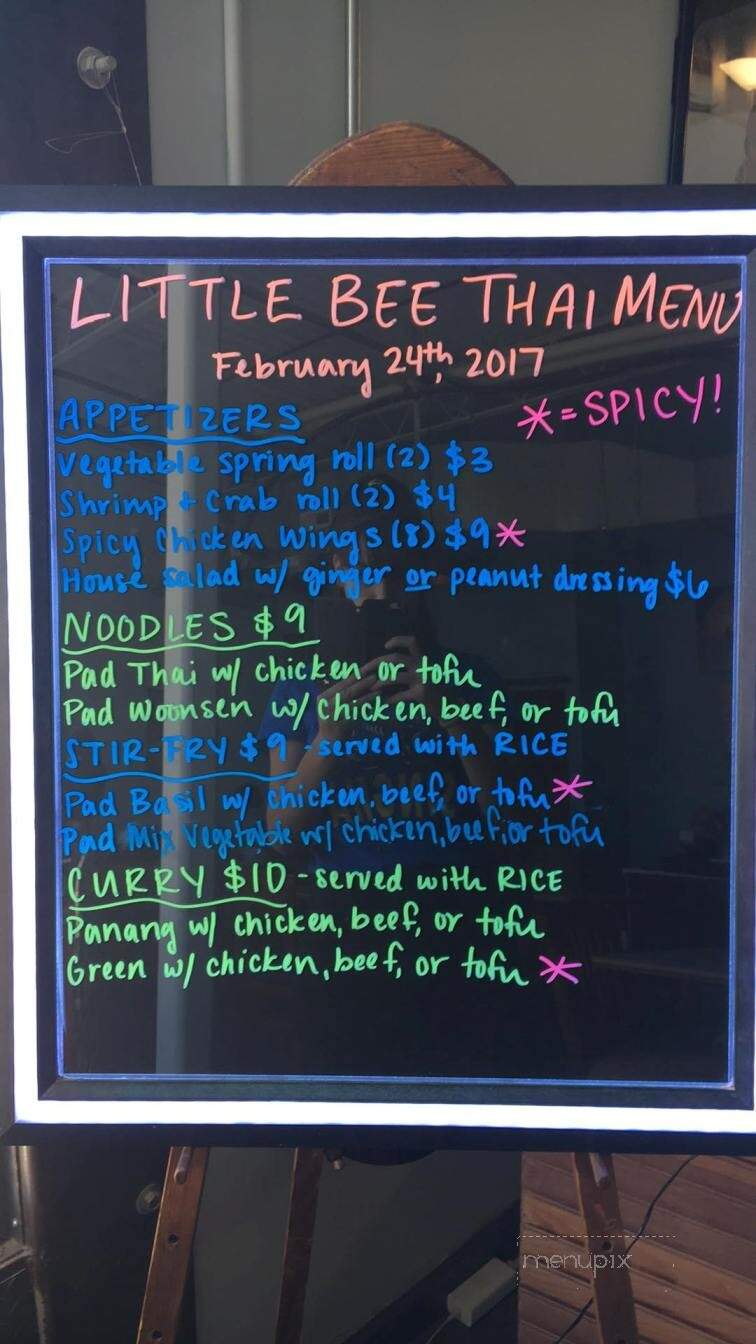 LITTLE BEE THAI MENU
February 24th, 2017
*=SPICY!
APPETIZERS
Vegetable spring roll (2) $3
Shrimp + Crab roll (2) $4
Spicy Chicken Wings (8) $9*
House Salad w/ ginger or peanut dressing $6
NOODLES $9
Pad Thai w/ chicken or tofu
Pad Woonsen w/ chicken, beef, or tofu
STIR-FRY $9 - served with RICE
Pad Basil w/ chicken, beef, or tofu*
Pad Mix Vegetable w/ chicken, beef, or tofu
CURRY $10 - served with RICE
Panang w/ chicken, beef, or tofu
Green w/ chicken, beef, or tofu *
menupix